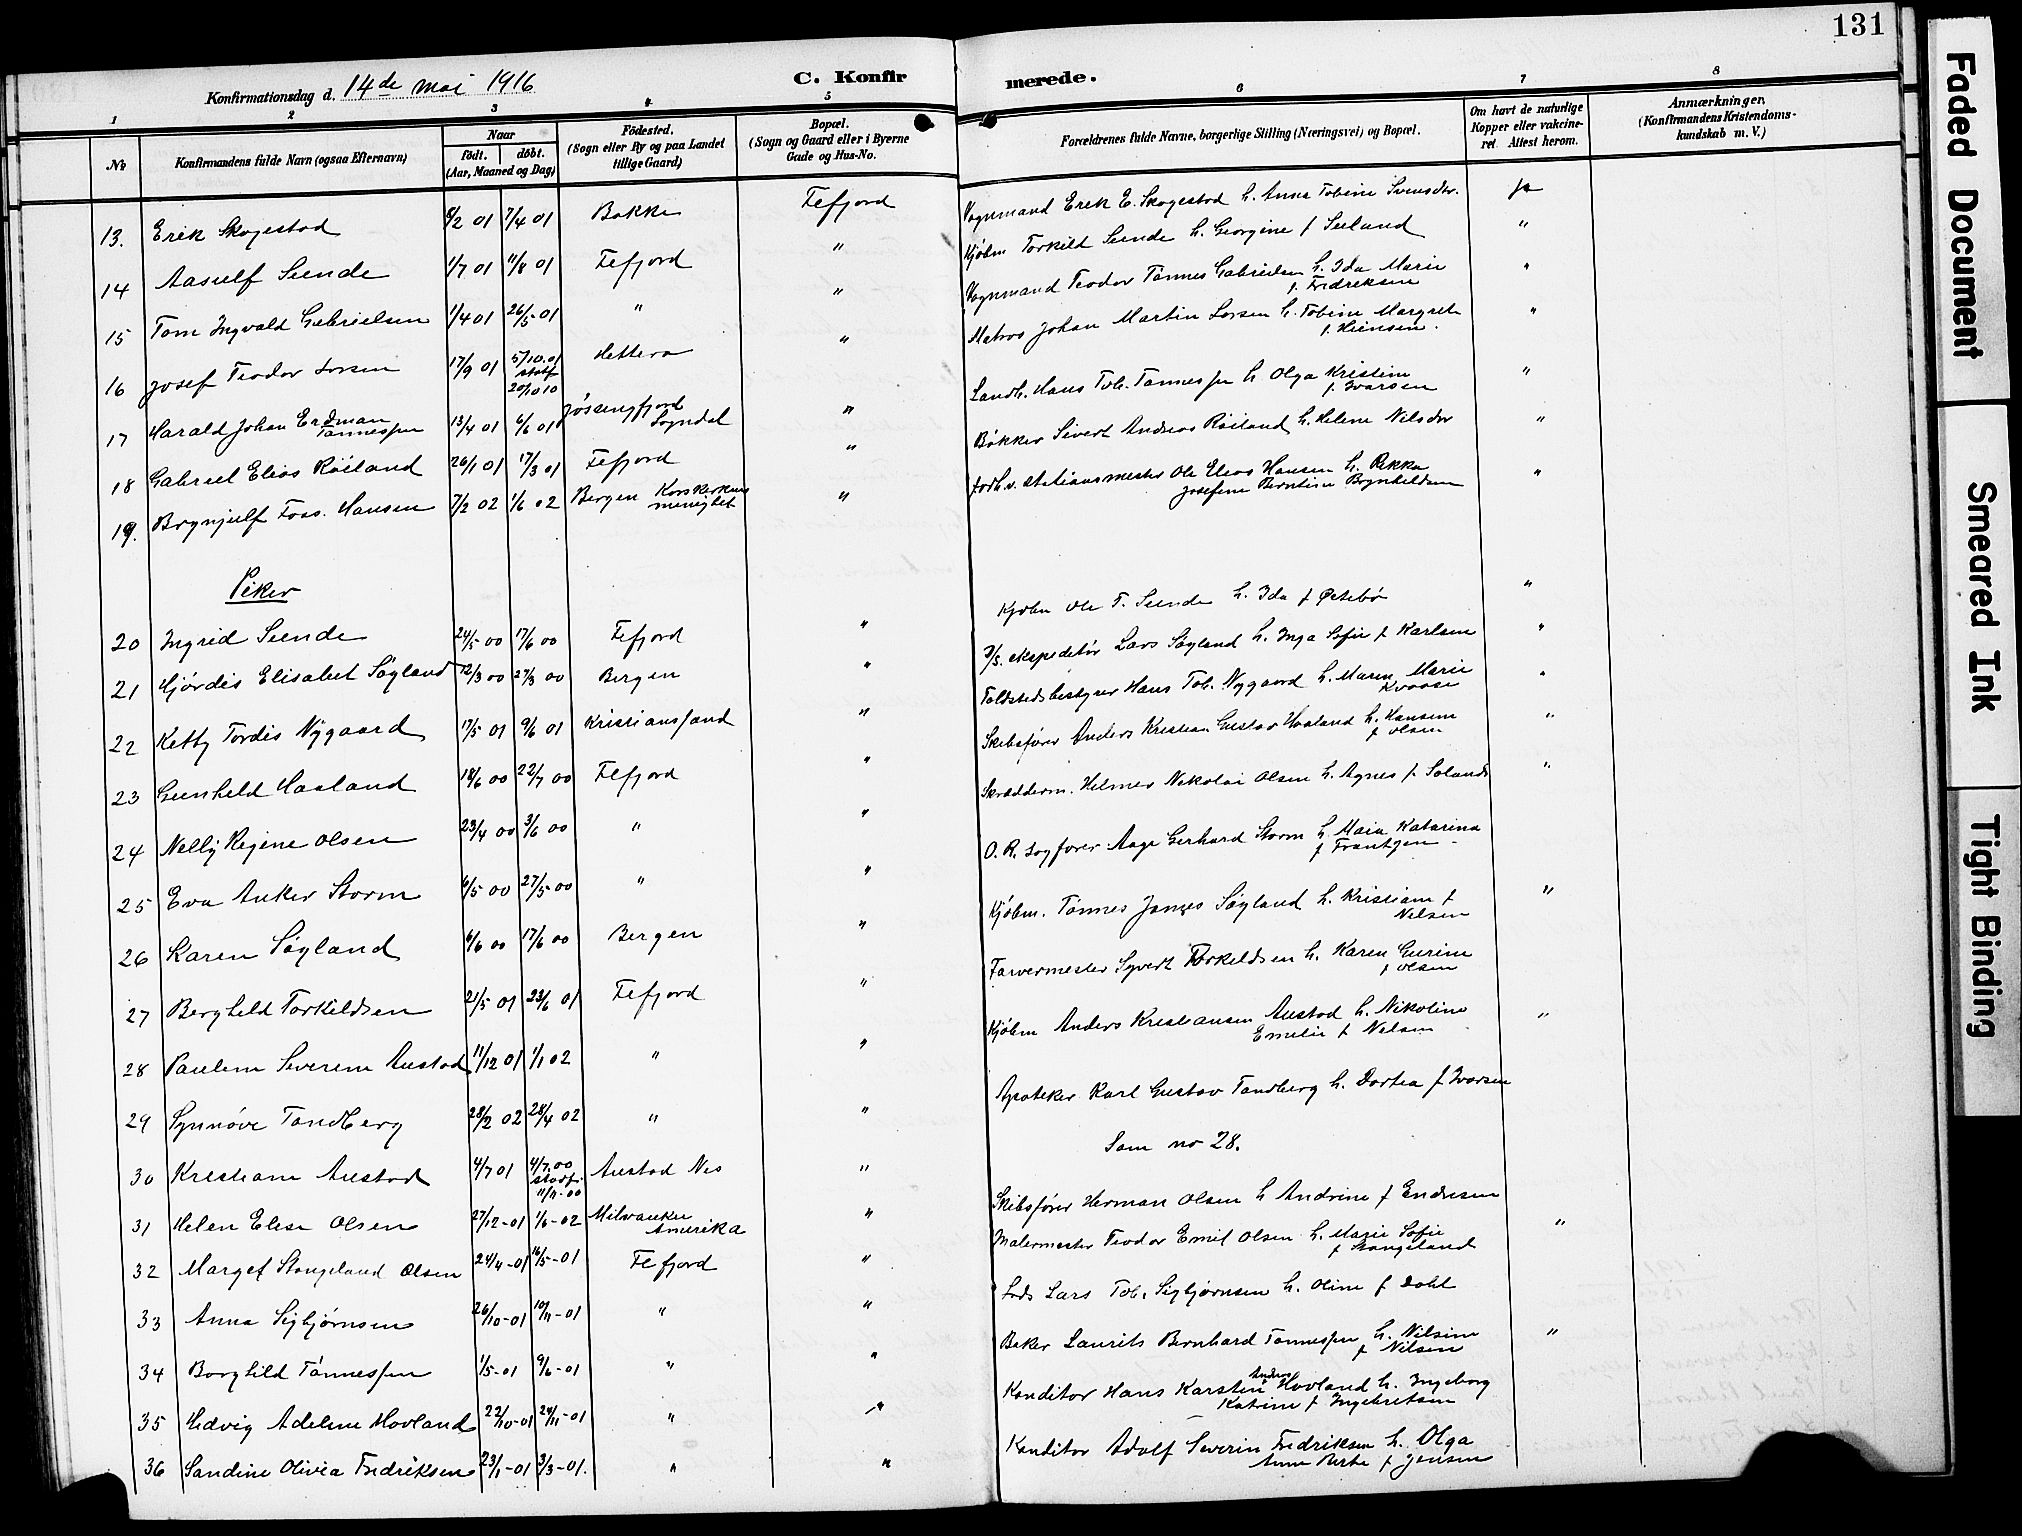 131
Konfirmationsdag d. 14de mai 1916
C. Konfirmerede.
1 2 3 4 5 6 7 8
No.
Konfirmandens fulde Navn (ogsaa Efternavn)
Naar
født. døbt.
(Aar, Maaned og Dag)
Fødested.
(Sogn eller By og paa Landet
tillige Gaard)
Bopæl.
(Sogn og Gaard eller i Byerne
Gade og Hus-No.
Forældrenes fulde Navne, borgerlige Stilling (Næringsvei) og Bopæl.
Om havt de naturlige
Kopper eller vakcine-
ret. Attest herom.
Anmærkninger.
(Konfirmandens Kristendoms-
kundskab m. V.)
13. Erik Skogestad 8/2 01 7/4 01 Bakke Fefjord Vognmand Erik E. Skogestad h. Anna Tobine Svensdtr. Ja
14 Aasulf Seende 1/7 01 11/8 01 Fefjord " Kjøbm Torkild Seende h. Georgine f Seeland "
15 Tom Ingvald Gabrielsen 1/4 01 26/5-01 " " Vognmand Teodor Tønnes Gabrielsen h. Ida Marie f. Fredriksen "
16 Josef Teodor Larsen 17/9 01 5/10.01 stadf 20/10 10 Hettera " Matros Johan Martin Larsen h. Tobine Margrete f. Heinsen. "
17 Harald Johan Erdman Tønnessen 13/4 01 6/6 01 Jøssingfjord Sogndal " Landh. Hans Tob. Tønnessen h Olga Kristine f. Ivarsen "
18 Gabriel Elias Røiland 26/1 01 17/3 01 Fefjord " Bøkker Sivert Andreas Røiland h. Helene Nilsdtr "
19. Brynjulf Foss. Hansen 7/2 02 1/6 02 Bergen Korskirkens menighet " forhv. stationsmester Ole Elias Hansen h. Rikka Josefine Berntine Brynhildsen "
Piker
20 Ingrid Seende 24/5-00 17/6 00 Fefjord " Kjøbm Ole T. Seende h. Ida f Østebø "
21 Hjørdis Elisabet Søyland 12/3 00 27/3 00 Bergen " D/S. ekspeditør Lars Søyland h. Inga Sofie f Karlsen "
22 Ketty Tordis Nygaard 17/5 01 9/6 01 Kristiansand " Toldstedsbestyrer Hans Tob. Nygaard h. Maren Marie Kvaase "
23 Gunhild Haaland 18/6 00 22/7 00 Flefjord " Skibsfører Anders Kristian Gustav Haaland h. Hansine f Olsen "
24 Nelly Regine Olsen 23/4 00 3/6 00 " " Skrædderm. Helmer Nikolai Olsen h. Agnes f. Solands "
25 Eva Anker Storm 6/5 00 27/5-00 " " O. R. sagfører Aage Gerhard Storm h. Maia Katarina f Frantzen -
26 Karen Søyland 6/6 00 17/6 00 Bergen " Kjøbm. Tønnes James Søyland h. Kristiane f Nilsen "
27 Berghild Torkildsen 21/5 01 23/6 01 Fefjord " Farvermester Syvert Torkildsen h. Karen Gurine f Olsen
28 Pauline Severine Austad 11/12 01 1/1 02 " " Kjøbm Anders Kristiansen Austad h. Nikoline Emilie f Nilsen "
29 Synnøve Tandberg 28/2 02 28/4 02 " " Apoteker Karl Gustav Tandberg h. Dortea f Ivarsen
30 Kristiane Austad 4/7 01 4/7.00 stadf. 11/11-00 Austad Nes " Som no 28.
31 Helen Elise Olsen 27/12-01 1/6-02 Milwaukee Amerika " Skibsfører Herman Olsen h Andrine f Endresen
32 Marget Stangeland Olsen 24/4-01 16/5-01 Flefjord " Malermester Teodor Emil Olsen h. Marie Sofie f Stangeland "
33 Anna Sigbjørnsen 26/10-01 10/11-01 " " Lods Lars Tob. Sigbjørnsen h. Oline f Dahl
34 Borghild Tønnessen 1/5-01 9/6-01 " " Baker Laurits Bernhard Tønnessen h. Nilsine f Nilsen "
35 Hedvig Adeline Hovland 22/10-01 24/11-01 " " Konditor Hans Karsten Andreas Hovland h. Ingeborg Katrine f Ingebretsen
36 Sandine Olivia Fredriksen 23/1-01 3/3-01. " " Konditor Adolf Severin Fredriksen h. Olga Anne Berte f Jensen
Faded Document
Smeared Ink
Tight Binding